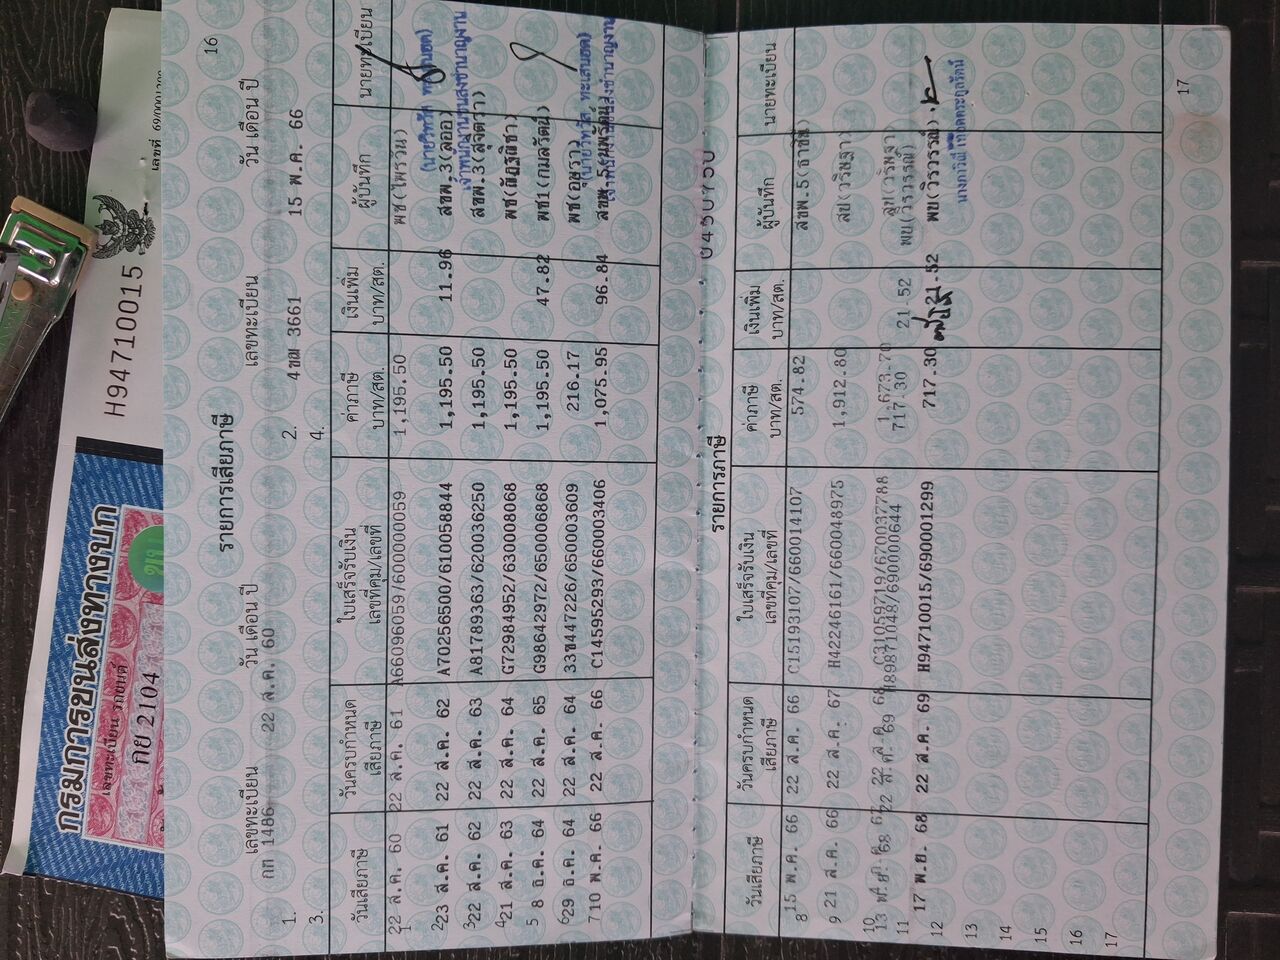 กรมการขนส่งทางบก
เลขทะเบียน รถยนต์
กย 2104
ขข
H94710015
เลขที่ 69/0001299
16
รายการเสียภาษี
เลขทะเบียน วัน เดือน ปี เลขทะเบียน วัน เดือน ปี
1. กท 1486 22 ส.ค. 60 2. 4ขฌ 3661 15 พ.ค. 66
3. 4.
วันเสียภาษี วันครบกำหนดเสียภาษี ใบเสร็จรับเงิน เลขที่คุม/เลขที่ ค่าภาษี บาท/สต. เงินเพิ่ม บาท/สต. ผู้บันทึก นายทะเบียน
1 22 ส.ค. 60 22 ส.ค. 61 A66096059/6000000059 1,195.50 พช(ไพรวัน)
2 23 ส.ค. 61 22 ส.ค. 62 A70256500/610058844 1,195.50 11.96 สขพ.3(ลออ)
3 22 ส.ค. 62 22 ส.ค. 63 A81789363/6200036250 1,195.50 สขพ.3(สุจิตรา)
4 21 ส.ค. 63 22 ส.ค. 64 G72984952/6300008068 1,195.50 พช(ณัฏฐณิชา)
5 8 ธ.ค. 64 22 ส.ค. 65 G98642972/650006868 1,195.50 47.82 พช1(กมลวัตน์)
6 29 ธ.ค. 64 22 ส.ค. 64 33ข1447226/650003609 216.17 พช(อมรา)
7 10 พ.ค. 66 22 ส.ค. 66 C14595293/660003406 1,075.95 96.84 สขพ.5
เจ้าพนักงานขนส่งชำนาญงาน
0450750
รายการภาษี
วันเสียภาษี วันครบกำหนดเสียภาษี ใบเสร็จรับเงิน เลขที่คุม/เลขที่ ค่าภาษี บาท/สต. เงินเพิ่ม บาท/สต. ผู้บันทึก นายทะเบียน
8 15 พ.ค. 66 22 ส.ค. 66 C15193107/660014107 574.82 สขพ.5(ธาชิน)
9 21 ส.ค. 66 22 ส.ค. 67 H42246161/660048975 1,912.80 สข(วริษฐา)
10 22 ส.ค. 68 C31059719/670037788 1,673.70
11 13 พ.ย. 68 22 ส.ค. 69 H89871048/690000644 717.30 21.52 พข(วิรวรรณ์)
12 17 พ.ย. 68 22 ส.ค. 69 H94710015/690001299 717.30 21.52 พข(วิรวรรณ์)
13
14
15
16
17
17